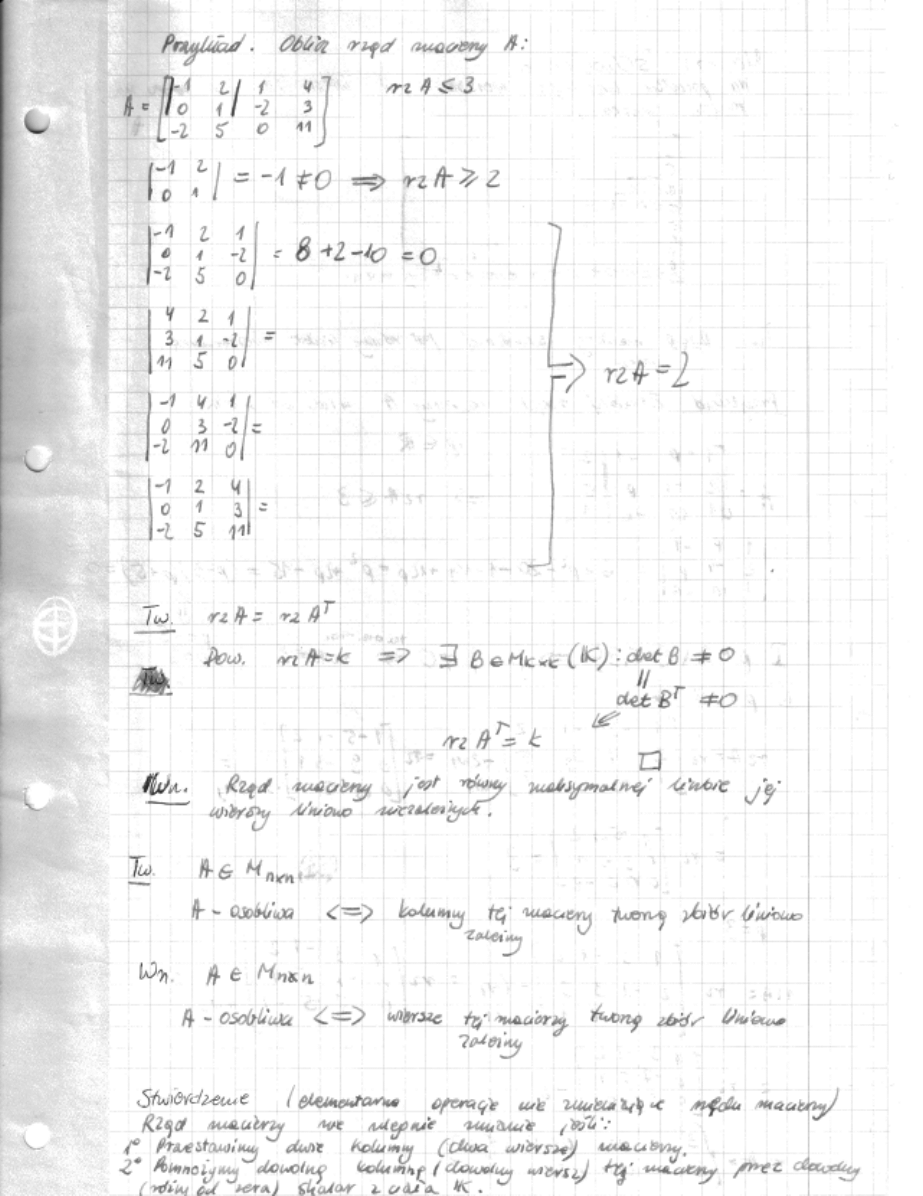 Przykład. Oblicz rząd macierzy A:
A = [ -1 2 1 4 rz A ≤ 3
0 1 -2 3
-2 5 0 11 ]
| -1 2 |
| 0 1 | = -1 ≠ 0 ⟹ rz A ≥ 2
| -1 2 1 |
| 0 1 -2 | = 8 + 2 - 10 = 0
| -2 5 0 |
| 4 2 1 |
| 3 1 -2 | =
| 11 5 0 |
⟹ rz A = 2
| -1 4 1 |
| 0 3 -2 | =
| -2 11 0 |
| -1 2 4 |
| 0 1 3 | =
| -2 5 11 |
Tw. rz A = rz Aᵀ
Dow. rz A = k ⟹ ∃ B ∈ M k×k (K) : det B ≠ 0
||
det Bᵀ ≠ 0
⇙
rz Aᵀ = k
□
Wn. Rząd macierzy jest równy maksymalnej liczbie jej
wierszy liniowo niezależnych.
Tw. A ∈ M n×n
A - osobliwa <=> kolumny tej macierzy tworzą zbiór liniowo
zależny
Wn. A ∈ M n×n
A - osobliwa <=> wiersze tej macierzy tworzą zbiór liniowo
zależny
Stwierdzenie (elementarne operacje nie zmieniające rzędu macierzy)
Rząd macierzy nie ulegnie zmianie jeśli:
1° Przestawimy dwie kolumny (dwa wiersze) macierzy.
2° Pomnożymy dowolną kolumnę (dowolny wiersz) tej macierzy przez dowolny
(różny od zera) skalar z ciała K.